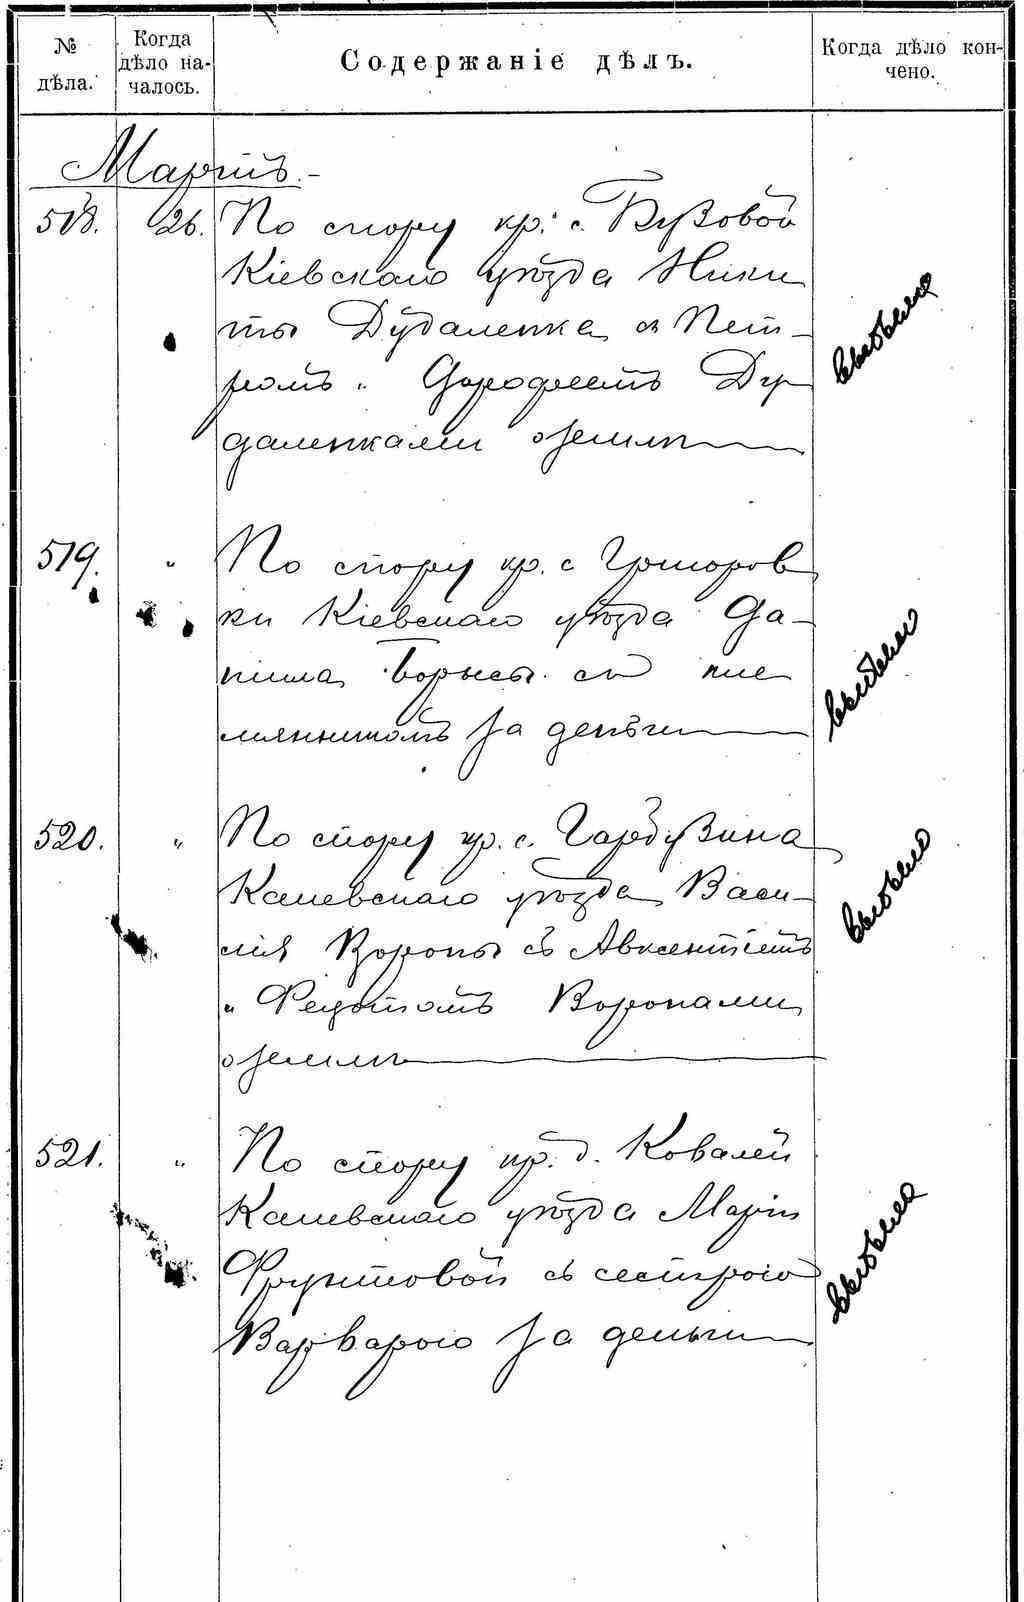 № дѣла.
Когда дѣло на-
чалось.
Содержаніе дѣлъ.
Когда дѣло кон-
чено.
Мартъ.-
518. 26. По спору кр. с. Бузовой
Кіевскаго уѣзда Ники
ты Дудаленка съ Пет-
ромъ и Дорофеемъ Ду-
даленками о землѣ
519. " По спору кр. с. Григоров
ки Кіевскаго уѣзда Да-
нила Борысы съ пле
мянникомъ за деньги
520. " По спору кр. с. Гарбузина
Каневскаго уѣзда Васи-
лія Вороны съ Авксентіемъ
и Федотомъ Воронами
о землѣ
521. " По спору кр. д. Ковалей
Каневскаго уѣзда Маріи
Фрунтовой съ сестрою
Варварою за деньги
выбыло
выбыло
выбыло
выбыло